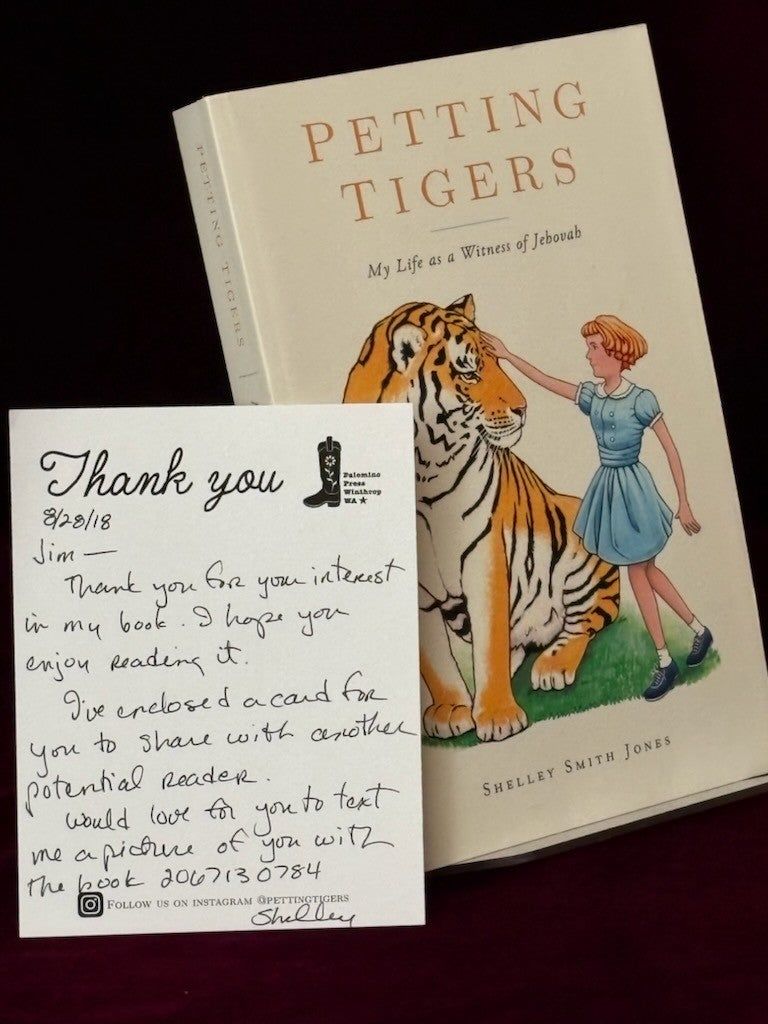 PETTING
TIGERS
My Life as a Witness of Jehovah
PETTING TIGERS
SHELLEY SMITH JONES
Thank you
Palomino
Press
Winthrop
WA ★
8/28/18
Jim —
Thank you for your interest
in my book. I hope you
enjoy reading it.
I've enclosed a card for
you to share with another
potential reader.
Would love for you to text
me a picture of you with
the book 2067130784
FOLLOW US ON INSTAGRAM @PETTINGTIGERS
Shelley